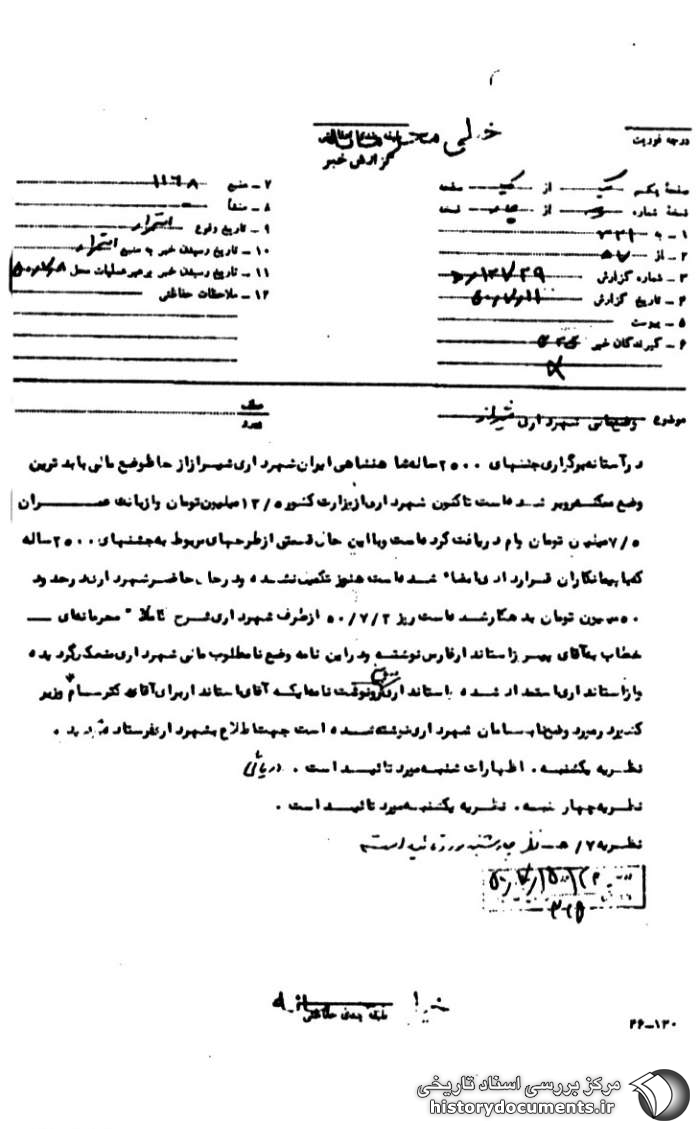 خیلی محرمانه
گزارش خبر
درجه فوریت
صفحهٔ یکم از صفحه
نسخهٔ شماره از نسخه
۱ - به ۳۲۱
۲ - از ۵۷
۳ - شماره گزارش
۴ - تاریخ گزارش ۵۰/۷/۱۱
۵ - پیوست
۶ - گیرندگان خبر
۷ - منبع ۱۱۶۸
۸ - منشأ
۹ - تاریخ وقوع استمرار
۱۰ - تاریخ رسیدن خبر به منبع استمرار
۱۱ - تاریخ رسیدن خبر برهبر عملیات محل ۵۰/۷/۸
۱۲ - ملاحظات حفاظتی
موضوع وضع مالی شهرداری شیراز
درآستانه برگزاری جشنهای ۲۵۰۰ ساله شاهنشاهی ایران شهرداری شیراز از حاظ وضع مالی با بدترین
وضع ممکنه روبرو شده است تاکنون شهرداری از وزارت کشور ۱۳/۵ میلیون تومان و از بانک عمـــران
۷/۵ میلیون تومان وام دریافت کرده است و با این حال قسمتی از طرحهای مربوط به جشنهای ۲۵۰۰ ساله
که با پیمانکاران قرارداد ی امضاء شده است هنوز تکمیل نشده و در حال حاضر شهرداری در حدود
۵۰ میلیون تومان بدهکار شده است روز ۵۰/۷/۲ از طرف شهرداری شرح کاملا" محرمانه‌ای
خطاب به آقای پیرنیا استاندار فارس نوشته و در این نامه وضع نامطلوب مالی شهرداری منعکس گردیده
و از استانداری استمداد شده استانداری رونوشت نامه‌ایکه آقای استاندار برای آقای دکتر سام وزیر
کشور در مورد وضع نابسامان شهرداری نوشته شده است جهت اطلاع بشهرداری فرستاده
نظریه یکشنبه . اظهارات شنبه مورد تائید است . دریائی
نظریه چهارشنبه . نظریه یکشنبه مورد تائید است .
نظریه ۷/ه - نظر چهارشنبه مورد تائید است
طبقه بندی حفاظتی
۲۶-۱۳۰
مرکز بررسی اسناد تاریخی
historydocuments.ir